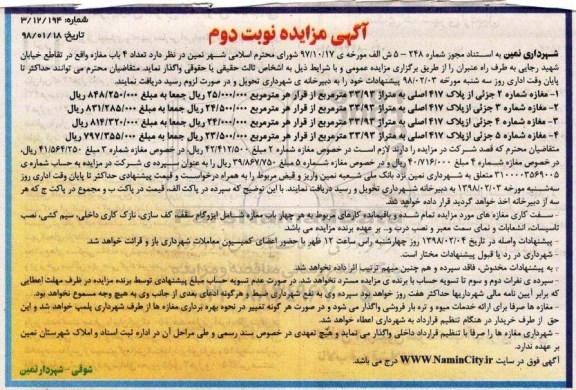 شماره: ۳/۱۲/۱۹۴
آگهی مزایده نوبت دوم
تاریخ: ۹۸/۰۱/۱۸
شهرداری نمین به استناد مجوز شماره ۲۴۸ - ۵ ش الف مورخه ی ۹۷/۱۰/۱۷ شورای محترم اسلامی شهر نمین در نظر دارد تعداد ۴ باب مغازه واقع در تقاطع خیابان
شهید رجایی به طرف راه عنبران را از طریق برگزاری مزایده عمومی و با شرایط ذیل به اشخاص ثالث حقیقی یا حقوقی واگذار نماید. متقاضیان محترم می توانند حداکثر تا
پایان وقت اداری روز سه شنبه مورخه ۹۸/۰۲/۰۳ پیشنهادات خود را به دبیرخانه ی شهرداری تحویل و در صورت لزوم رسید دریافت نمایند.
۱- مغازه شماره ۲ جزئی از پلاک ۴۱۷ اصلی به متراژ ۳۳/۹۳ مترمربع از قرار هر مترمربع ۲۵/۰۰۰/۰۰۰ ریال جمعا به مبلغ ۸۴۸/۲۵۰/۰۰۰ ریال.
۲- مغازه شماره ۳ جزئی از پلاک ۴۱۷ اصلی به متراژ ۳۳/۹۳ مترمربع از قرار هر مترمربع ۲۴/۵۰۰/۰۰۰ ریال جمعا به مبلغ ۸۳۱/۲۸۵/۰۰۰ ریال.
۳- مغازه شماره ۴ جزئی از پلاک ۴۱۷ اصلی به متراژ ۳۳/۹۳ مترمربع از قرار هر مترمربع ۲۴/۰۰۰/۰۰۰ ریال جمعا به مبلغ ۸۱۴/۳۲۰/۰۰۰ ریال.
۴- مغازه شماره ۵ جزئی از پلاک ۴۱۷ اصلی به متراژ ۳۳/۹۳ مترمربع از قرار هر مترمربع ۲۳/۵۰۰/۰۰۰ ریال جمعا به مبلغ ۷۹۷/۳۵۵/۰۰۰ ریال.
متقاضیان محترم که قصد شرکت در مزایده را دارند لازم است در خصوص مغازه شماره ۲ مبلغ ۴۲/۴۱۲/۵۰۰ ریال، در خصوص مغازه شماره ۳ مبلغ ۴۱/۵۶۴/۲۵۰ ریال،
در خصوص مغازه شماره ۴ مبلغ ۴۰/۷۱۶/۰۰۰ ریال و در خصوص مغازه شماره ۵ مبلغ ۳۹/۸۶۷/۷۵۰ ریال را به عنوان سپرده ی شرکت در مزایده به حساب شماره ی
۳۱۰۰۰۰۳۵۶۹۰۰۵ متعلق به شهرداری نمین نزد بانک ملی شعبه نمین واریز و فیش مربوط را به همراه درخواست و قیمت پیشنهادی حداکثر تا پایان وقت اداری روز
سه‌شنبه مورخه ۱۳۹۸/۰۲/۰۳ به دبیرخانه شهرداری تحویل و رسید دریافت نمایند. با این توضیح که سپرده در پاکت الف، قیمت در پاکت ب و مجموع در پاکت ج که هر
سه از دبیرخانه اخذ خواهد گردید قرار داده خواهد شد.
- سفت کاری مغازه های مورد مزایده تمام شده و باقیمانده کارهای مربوط به هر چهار باب مغازه شامل ایزوگام سقف، کف سازی، نازک کاری داخلی، سیم کشی، نصب
تاسیسات، انشعابات و نمای سمت معبر و نصب درب و.. بر عهده برنده مزایده می باشد
- پیشنهادات واصله در تاریخ ۱۳۹۸/۰۲/۰۴ روز چهارشنبه راس ساعت ۱۲ ظهر با حضور اعضای کمیسیون معاملات شهرداری باز و قرائت خواهد شد.
- شهرداری در رد یا قبول پیشنهادات مختار است.
- به پیشنهادات مخدوش، فاقد سپرده و هم چنین مبهم ترتیب اثر داده نخواهد شد.
- سپرده ی نفرات دوم و سوم تا تسویه حساب با برنده ی مزایده مسترد نخواهد شد. در صورت عدم تسویه حساب مبلغ پیشنهادی توسط برنده مزایده در ظرف مهلت اعطایی
که برابر آیین نامه مالی شهرداریها حداکثر هفت روز خواهد بود سپرده وی به نفع شهرداری ضبط و هرگونه ادعای بعدی از جانب وی به هیچ وجه مسموع نخواهد بود.
- مغازه ها صرفا برای ارائه خدمات میوه و تره بار فروشی واگذار می شود و در صورت هر گونه تغییر در نحوه بهره برداری مغازه ها از طرف شهرداری پلمپ خواهد شد و این
حق از طرف خریدار در هنگام تنظیم قرارداد به شهرداری اعطاء خواهد شد.
- شهرداری مغازه ها را صرفاً با تنظیم قرارداد داخلی واگذار می نماید و هیچ تعهدی در خصوص سند رسمی و طی مراحل آن در اداره ثبت اسناد و املاک شهرستان نمین
بر عهده ندارد.
آگهی فوق در سایت WWW.NaminCity.ir درج می باشد.
شوقی - شهردار نمین